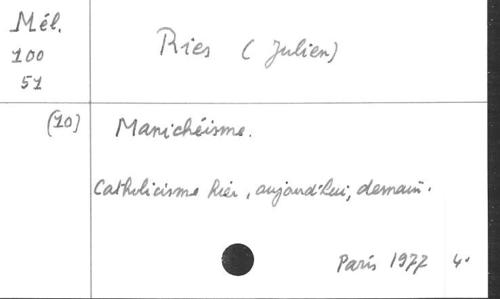 Mél.
100
51
Ries (Julien)
(10)
Manichéisme.
Catholicisme hier, aujourd'hui, demain.
Paris 1977 4.